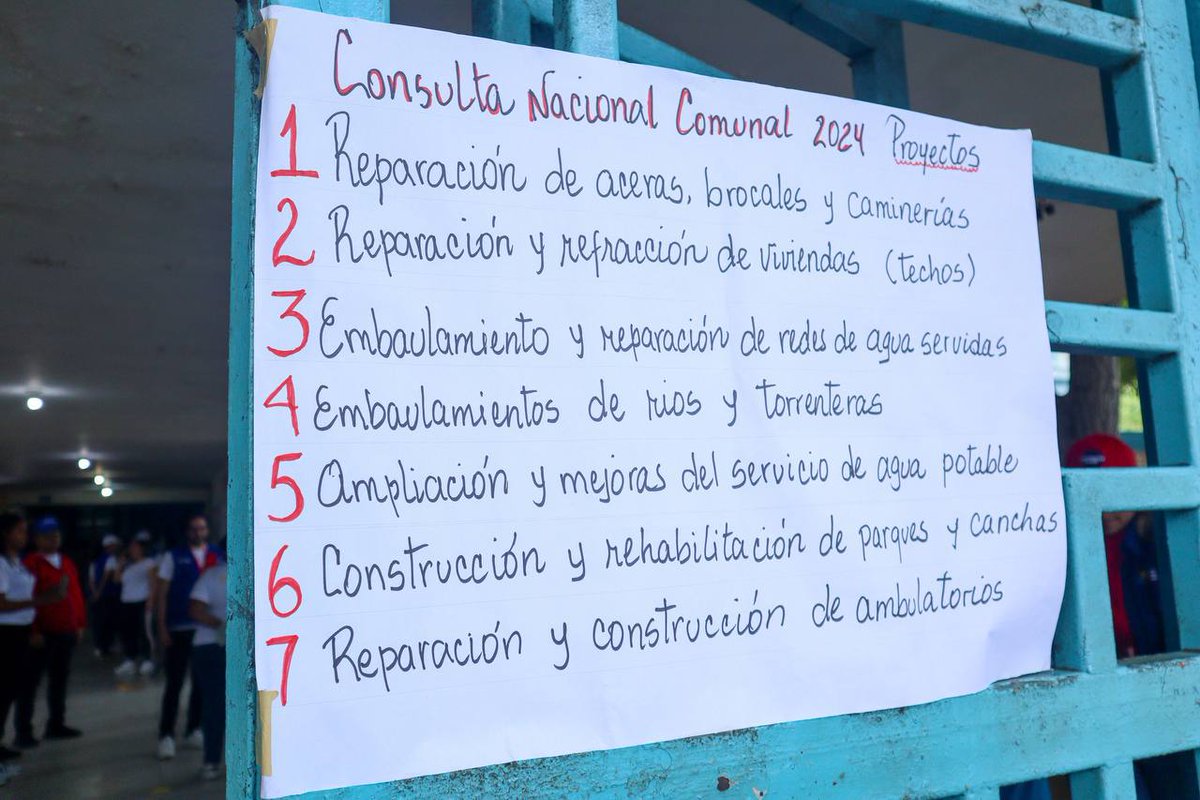 Consulta Nacional Comunal 2024 Proyectos
1 Reparación de aceras, brocales y caminerías
2 Reparación y refracción de viviendas (techos)
3 Embaulamiento y reparación de redes de agua servidas
4 Embaulamientos de rios y torrenteras
5 Ampliación y mejoras del servicio de agua potable
6 Construcción y rehabilitación de parques y canchas
7 Reparación y construcción de ambulatorios